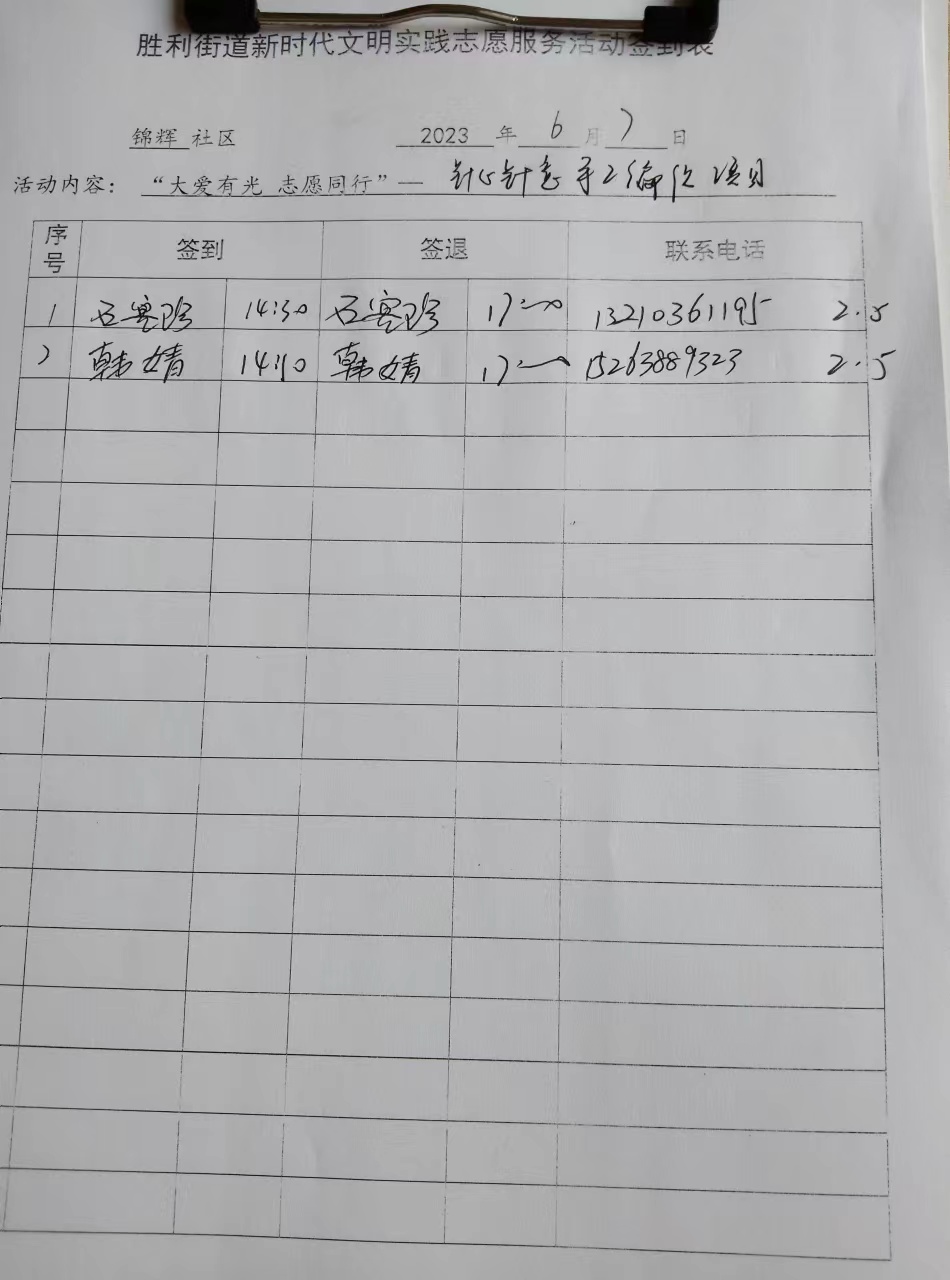 胜利街道新时代文明实践志愿服务活动签到表
锦辉 社区 2023 年 6 月 7 日
活动内容： “大爱有光 志愿同行”— 针心针意 手工编织 项目
序号 签到 签退 联系电话
1 石寒珍 14:30 石寒珍 17:00 13210361195 2.5
2 韩婧 14:30 韩婧 17:00 15263889323 2.5